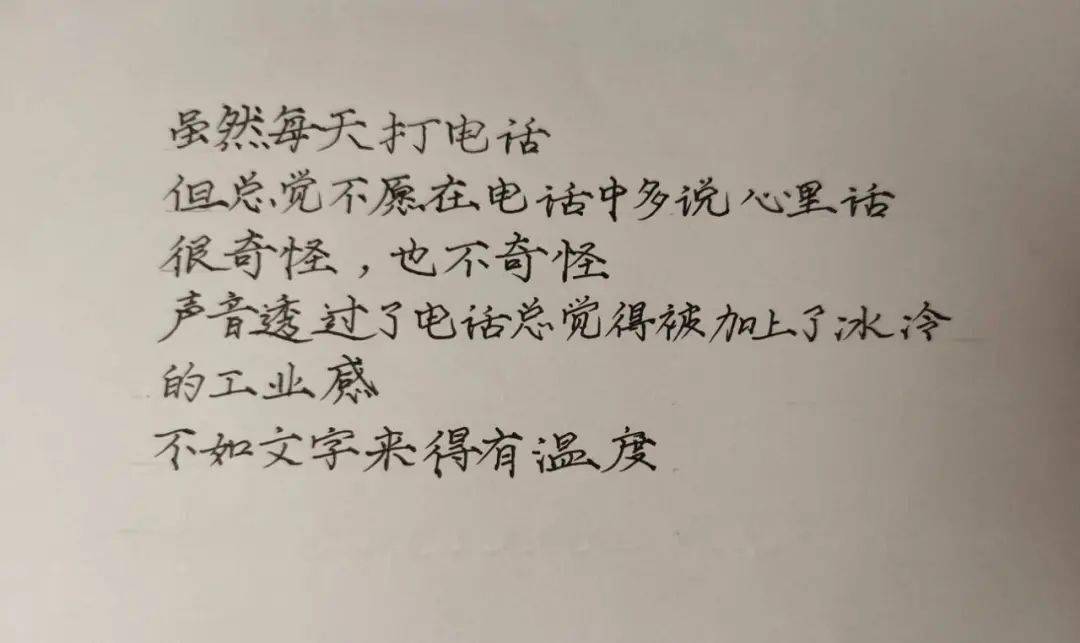 虽然每天打电话
但总觉不愿在电话中多说心里话
很奇怪，也不奇怪
声音透过了电话总觉得被加上了冰冷
的工业感
不如文字来得有温度